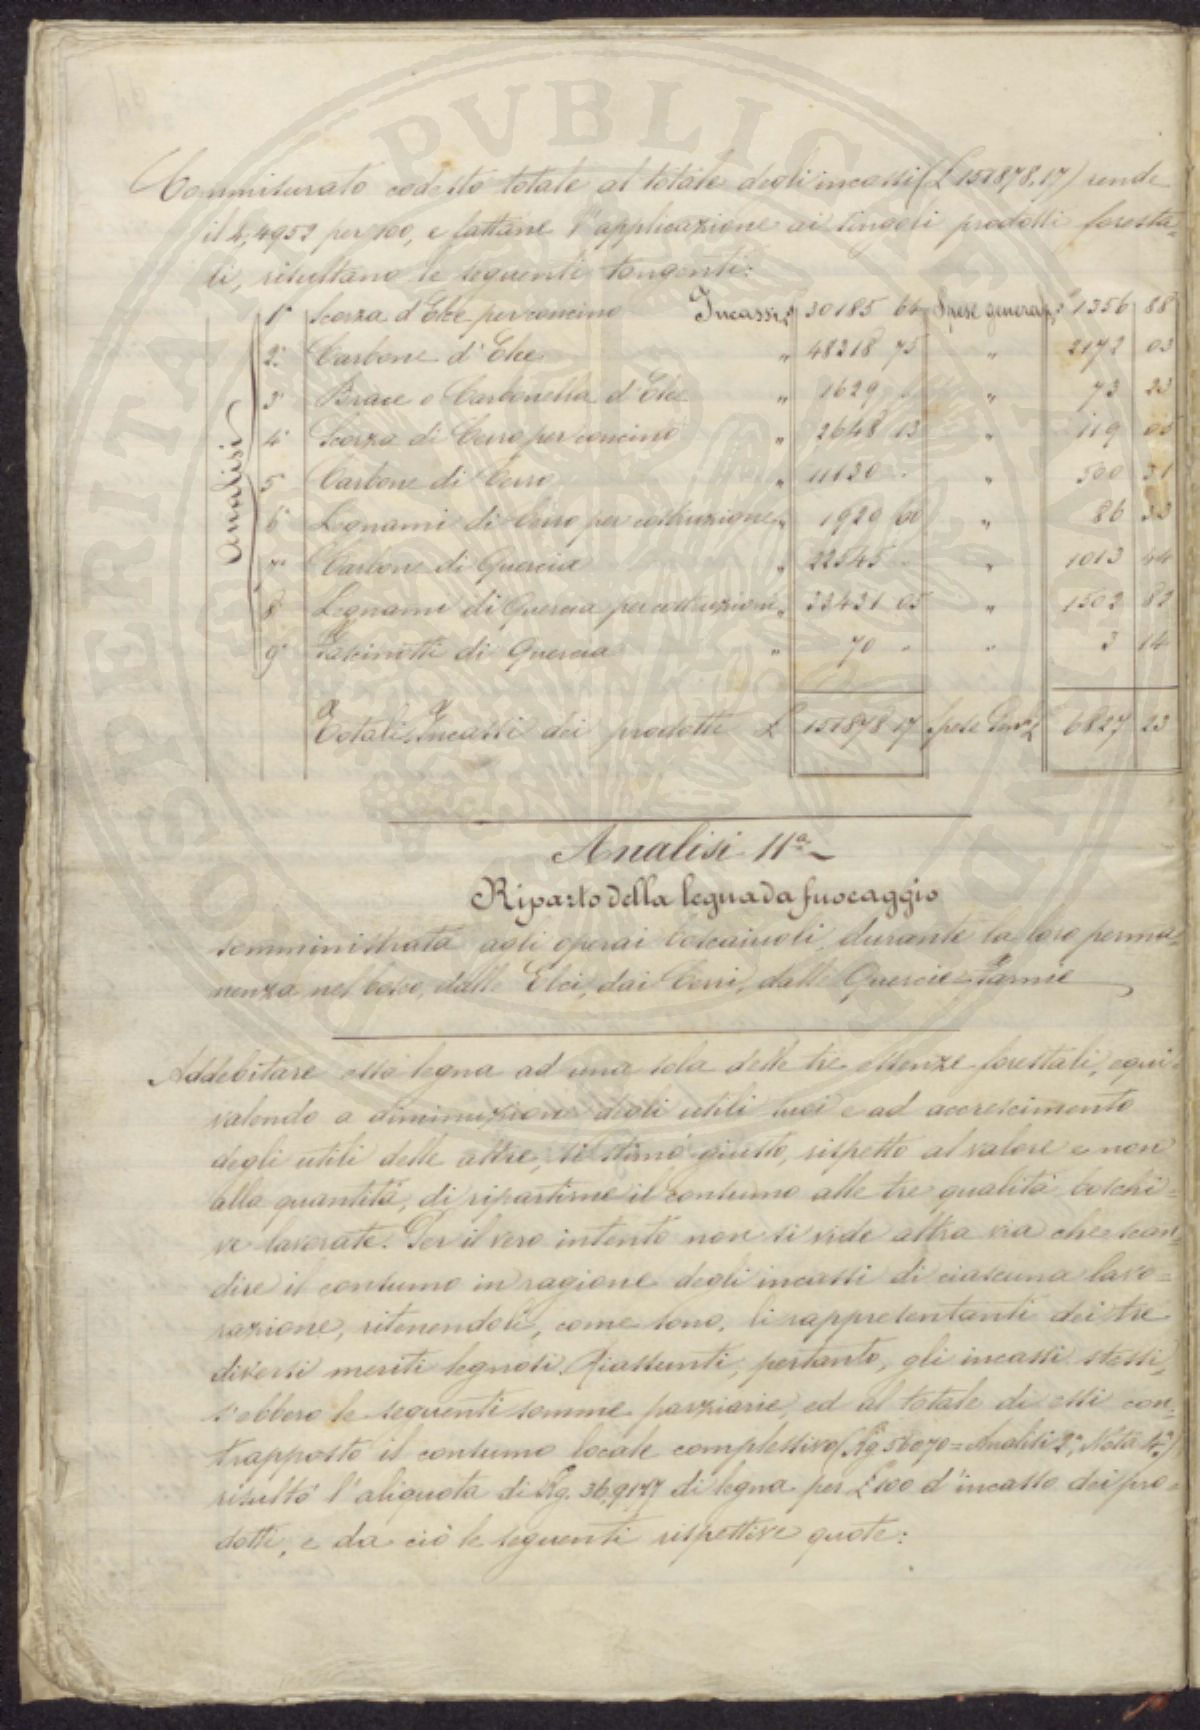 Commisurato codesto totale al totale degli incassi (£ 151878,17) rende
il 4,4952 per 100, e fattane l'applicazione ai singoli prodotti foresta=
li, risultano le seguenti tangenti:
Analisi
1ª Scorza d'Elce per concino Incassi £ 30185 64 Spese general £ 1356 88
2ª Carbone d'Elce " 48318 75 " 2172 03
3ª Brace o Carbonella d'Elce " 1629 " 73 23
4ª Scorza di Cerro per concino " 2648 13 " 119 05
5ª Carbone di Cerro " 11130 " " 500 31
6ª Legnami di Cerro per costruzione " 1920 60 " 86 33
7ª Carbone di Quercia " 22545 " " 1013 44
8ª Legnami di Quercia per costruzione " 33431 05 " 1502 82
9ª Fascinotti di Quercia " 70 " " 3 14
Totali Incassi dei prodotti £ 151878 17 Spese Gen.li £ 6827 23
Analisi 11ª
Riparto della legna da fuocaggio
somministrata agli operai boscaiuoli, durante la loro perma=
nenza nel bosco, dalle Elci, dai Cerri, dalle Quercie=Farnie
Addebitare essa legna ad una sola delle tre essenze forestali, equi=
valendo a diminuzione degli utili suoi e ad accrescimento
degli utili delle altre, si stimò giusto, rispetto al valore e non
alla quantità, di ripartirne il consumo alle tre qualità boschi=
ve lavorate. Per il vero intento non si vide altra via che scan=
dire il consumo in ragione degli incassi di ciascuna lavo=
razione, ritenendoli, come sono, li rappresentanti dei tre
diversi meriti legnosi. Riassunti, pertanto, gli incassi stessi,
s'ebbero le seguenti somme parziarie, ed al totale di essi con=
trapposto il consumo locale complessivo (Kg 56070 = Analisi 2ª, Nota 4ª)
risultò l'aliquota di Kg. 36,9177 di legna per £ 100 d'incasso dei pro=
dotti, e da ciò le seguenti rispettive quote: